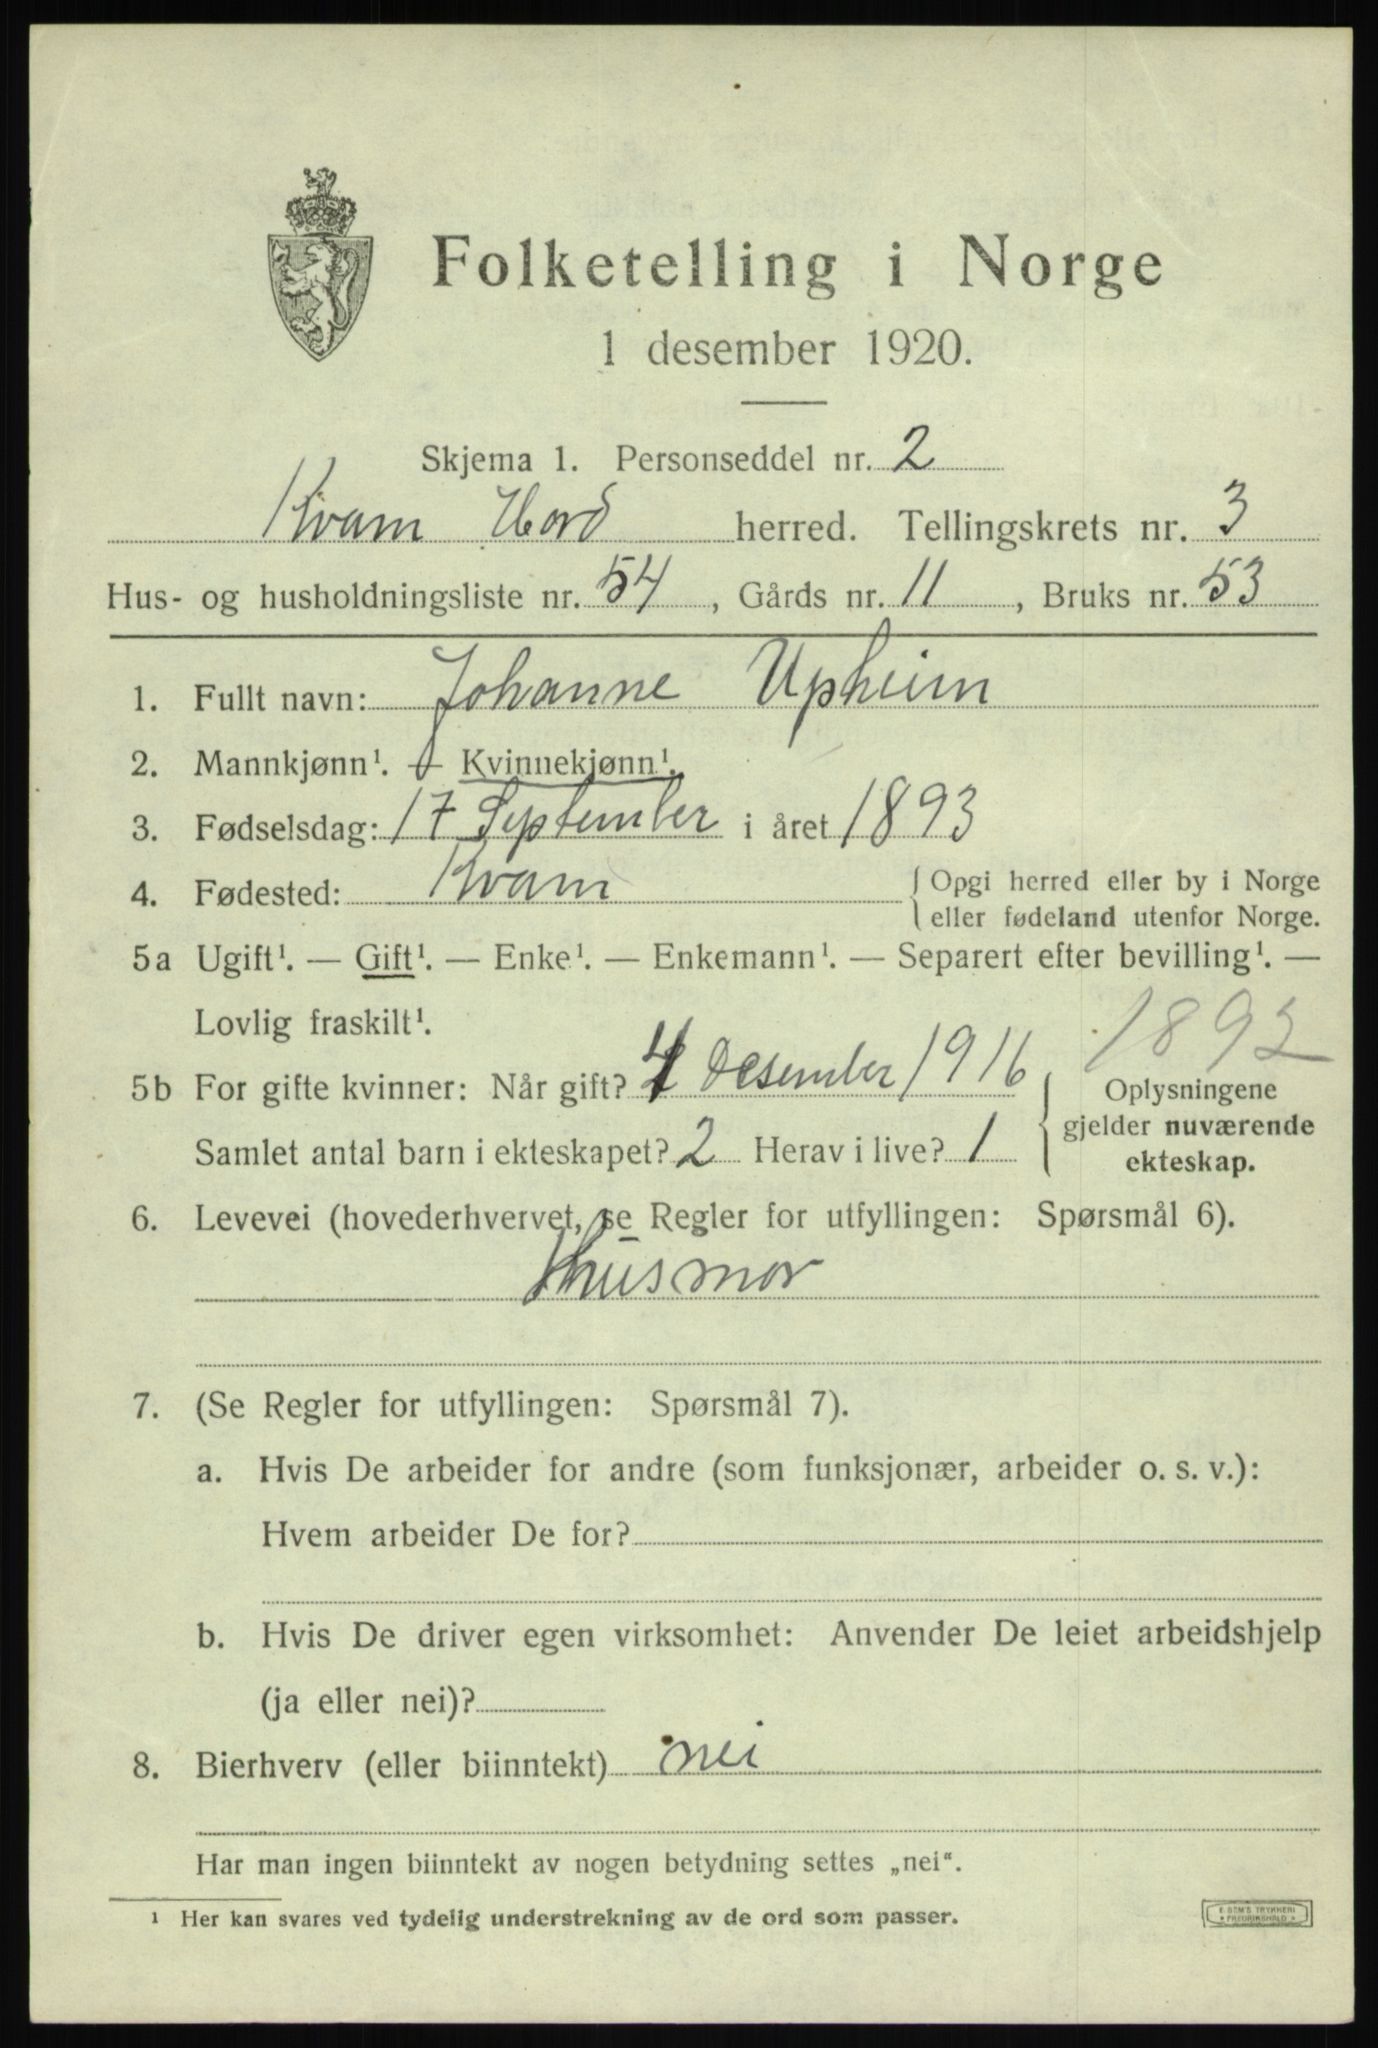 Folketelling i Norge
1 desember 1920.
Skjema 1. Personseddel nr. 2
Kvam Hord herred. Tellingskrets nr. 3
Hus- og husholdningsliste nr. 54, Gårds nr. 11, Bruks nr. 53
1. Fullt navn: Johanne Upheim
2. Mannkjønn¹. — Kvinnekjønn¹.
3. Fødselsdag: 17 September i året 1893
4. Fødested: Kvam { Opgi herred eller by i Norge
eller fødeland utenfor Norge.
5a Ugift¹. — Gift¹. — Enke¹. — Enkemann¹. — Separert efter bevilling¹. —
Lovlig fraskilt¹.
1892
5b For gifte kvinner: Når gift? 4 Desember 1916
Samlet antal barn i ekteskapet? 2 Herav i live? 1
Oplysningene
gjelder nuværende
ekteskap.
6. Levevei (hovederhvervet, se Regler for utfyllingen: Spørsmål 6).
Husmor
7. (Se Regler for utfyllingen: Spørsmål 7).
a. Hvis De arbeider for andre (som funksjonær, arbeider o. s. v.):
Hvem arbeider De for?
b. Hvis De driver egen virksomhet: Anvender De leiet arbeidshjelp
(ja eller nei)?
8. Bierhverv (eller biinntekt) nei
Har man ingen biinntekt av nogen betydning settes „nei“.
¹ Her kan svares ved tydelig understrekning av de ord som passer.
E. SEM'S TRYKKERI
* FREDRIKSHALD *